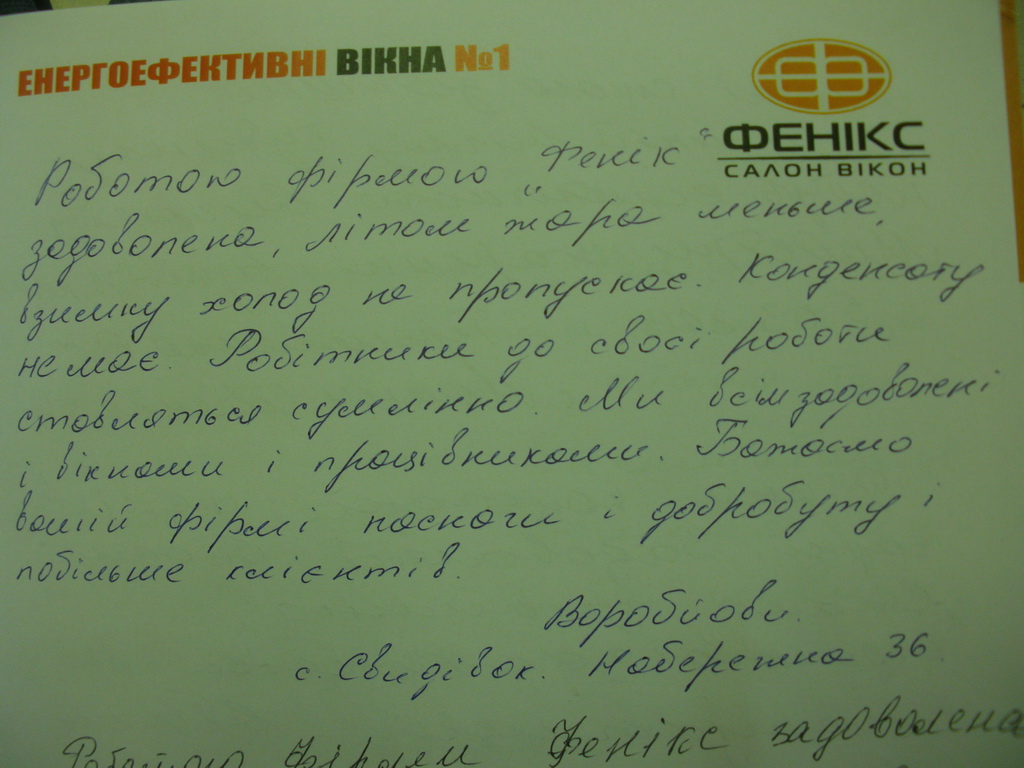 ЕНЕРГОЕФЕКТИВНІ ВІКНА №1
ФЕНІКС
САЛОН ВІКОН
Роботою фірмою "Фенік"
задоволена, літом жара меньше,
взимку холод не пропускає. Конденсату
немає. Робітники до своєї роботи
ставляться сумлінно. Ми всім задоволені
і вікнами і працівниками. Бажаємо
вашій фірмі наснаги і добробуту і
побільше клієнтів.
Воробйови.
с. Свидівок. Набережна 36.
Фенікс задоволена